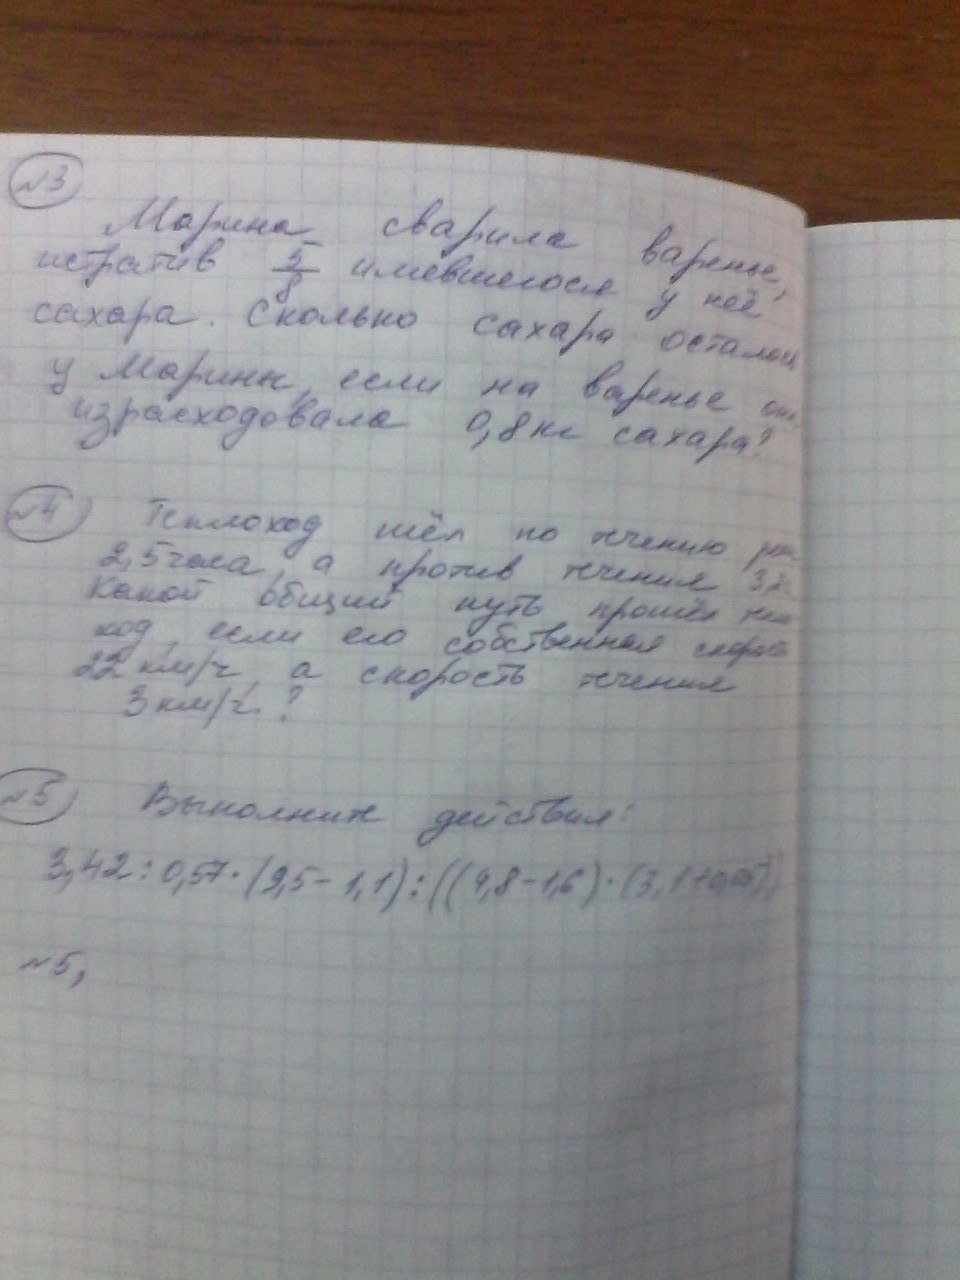 №3
Марина сварила варенье,
истратив 5/8 имевшегося у неё
сахара. Сколько сахара осталось
у Марины, если на варенье она
израсходовала 0,8 кг сахара?
№4 Теплоход шёл по течению
2,5 часа, а против течения 3
Какой общий путь прошёл теп
ход, если его собственная скорость
22 км/ч, а скорость течения
3 км/ч?
№5 Выполнить действия:
3,42:0,57·(9,5-1,1):((4,8-1,6)·(3,1+0,05)
№5,